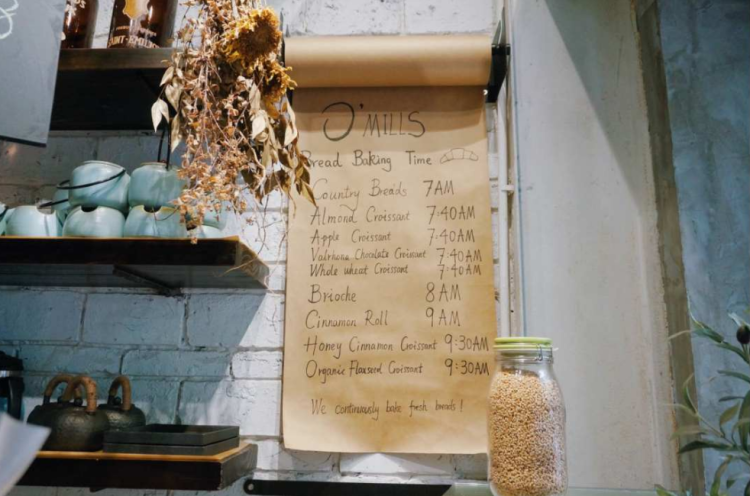 O'MILLS
Bread Baking Time
Country Breads 7AM
Almond Croissant 7:40AM
Apple Croissant 7:40AM
Valrhona Chocolate Croissant 7:40AM
Whole wheat Croissant 7:40AM
Brioche 8AM
Cinnamon Roll 9AM
Honey Cinnamon Croissant 9:30AM
Organic Flaxseed Croissant 9:30AM
We continuously bake fresh breads!